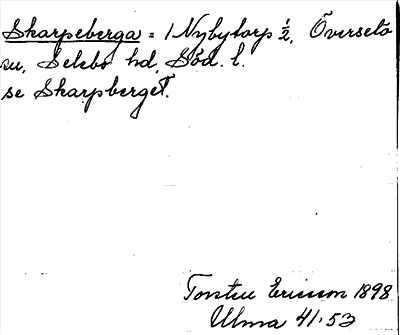 Skarpeberga = 1 Nybytorp ½, Överselö
sn, Selebo hd, Söd. l.
se Skarpberget.
Torsten Ericsson 1898
Ulma 41:53